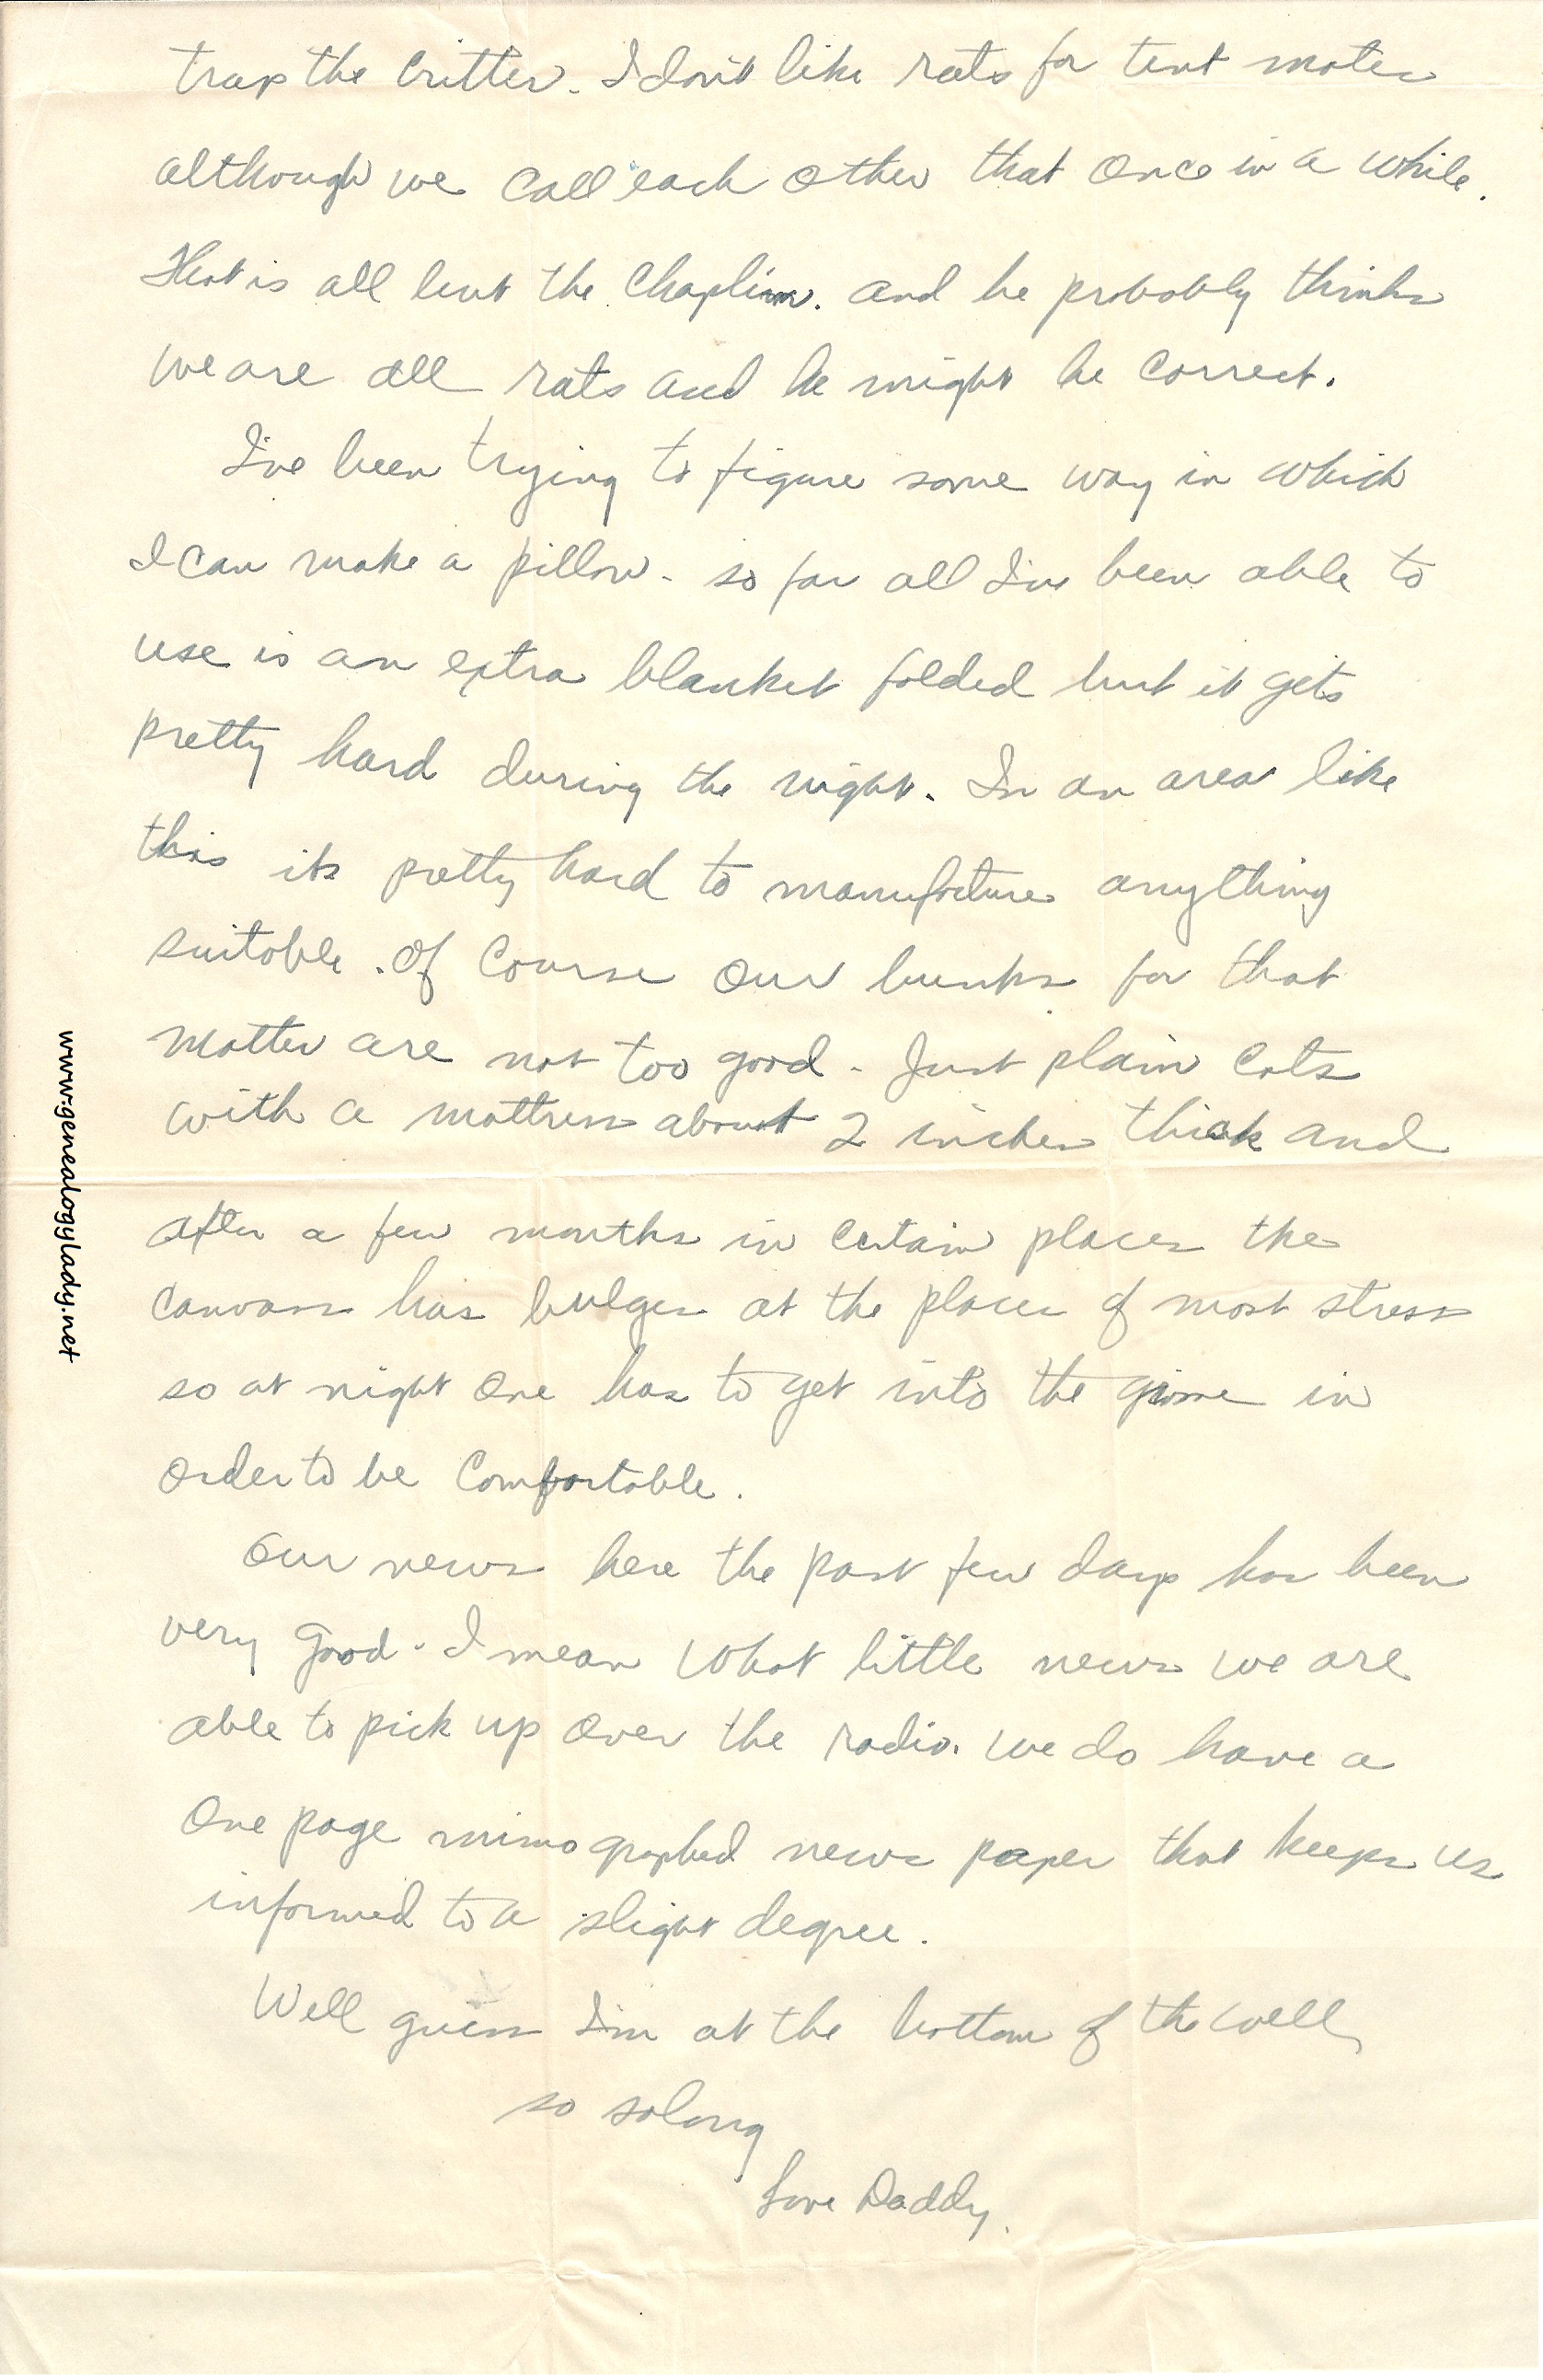 trap the critter. I don't like rats for tent mates
although we call each other that once in a while.
That is all but the Chaplin. and he probably thinks
we are all rats and he might be correct.
I've been trying to figure some way in which
I can make a pillow - so far all I've been able to
use is an extra blanket folded but it gets
pretty hard during the night. In an area like
this its pretty hard to manufacture anything
suitable. Of course our bunks for that
matter are not too good - Just plain cots
with a mattress about 2 inches thick and
after a few months in certain places the
canvass has bulges at the places of most stress
so at night one has to get into the in
order to be comfortable.
Our news here the past few days has been
very good - I mean what little news we are
able to pick up over the radio. We do have a
one page mimo graphed news paper that keeps us
informed to a slight degree.
Well guess I'm at the bottom of the well,
so solong
Love Daddy.
www.genealogylady.net